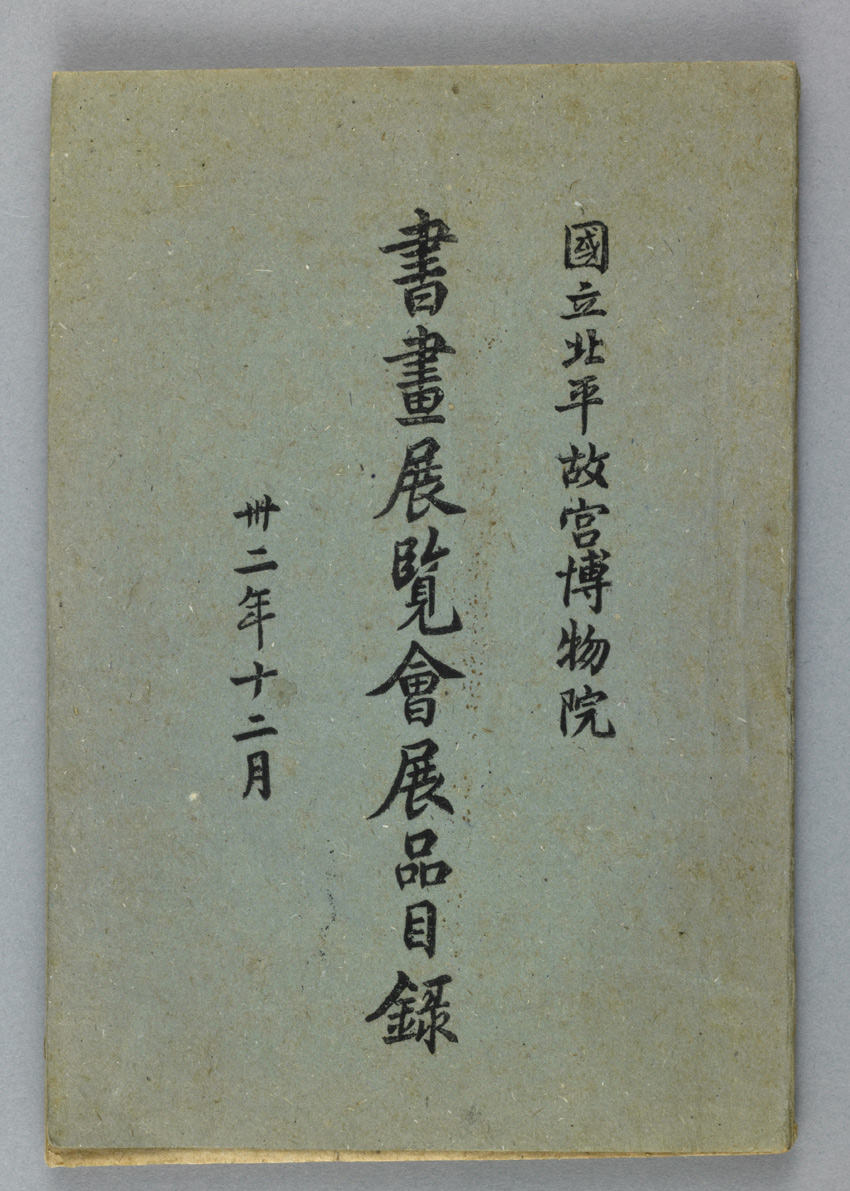 國立北平故宮博物院
書畫展覽會展品目錄
卅二年十二月